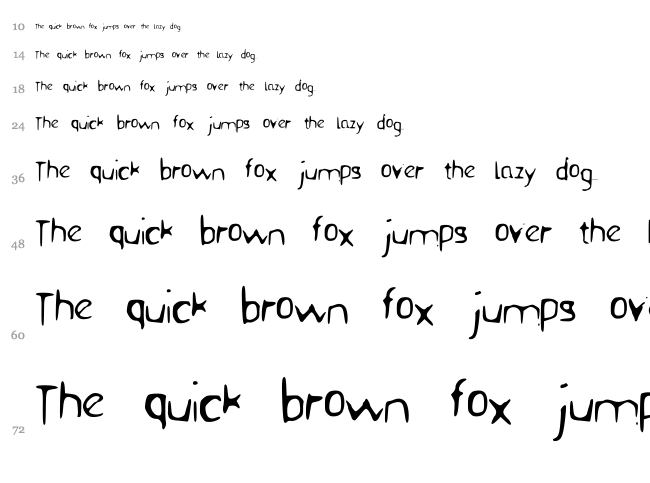 10 The quick brown fox jumps over the lazy dog
14 The quick brown fox jumps over the lazy dog
18 The quick brown fox jumps over the lazy dog
24 The quick brown fox jumps over the lazy dog
36 The quick brown fox jumps over the lazy dog
48 The quick brown fox jumps over the l
60 The quick brown fox jumps ov
72 The quick brown fox jump